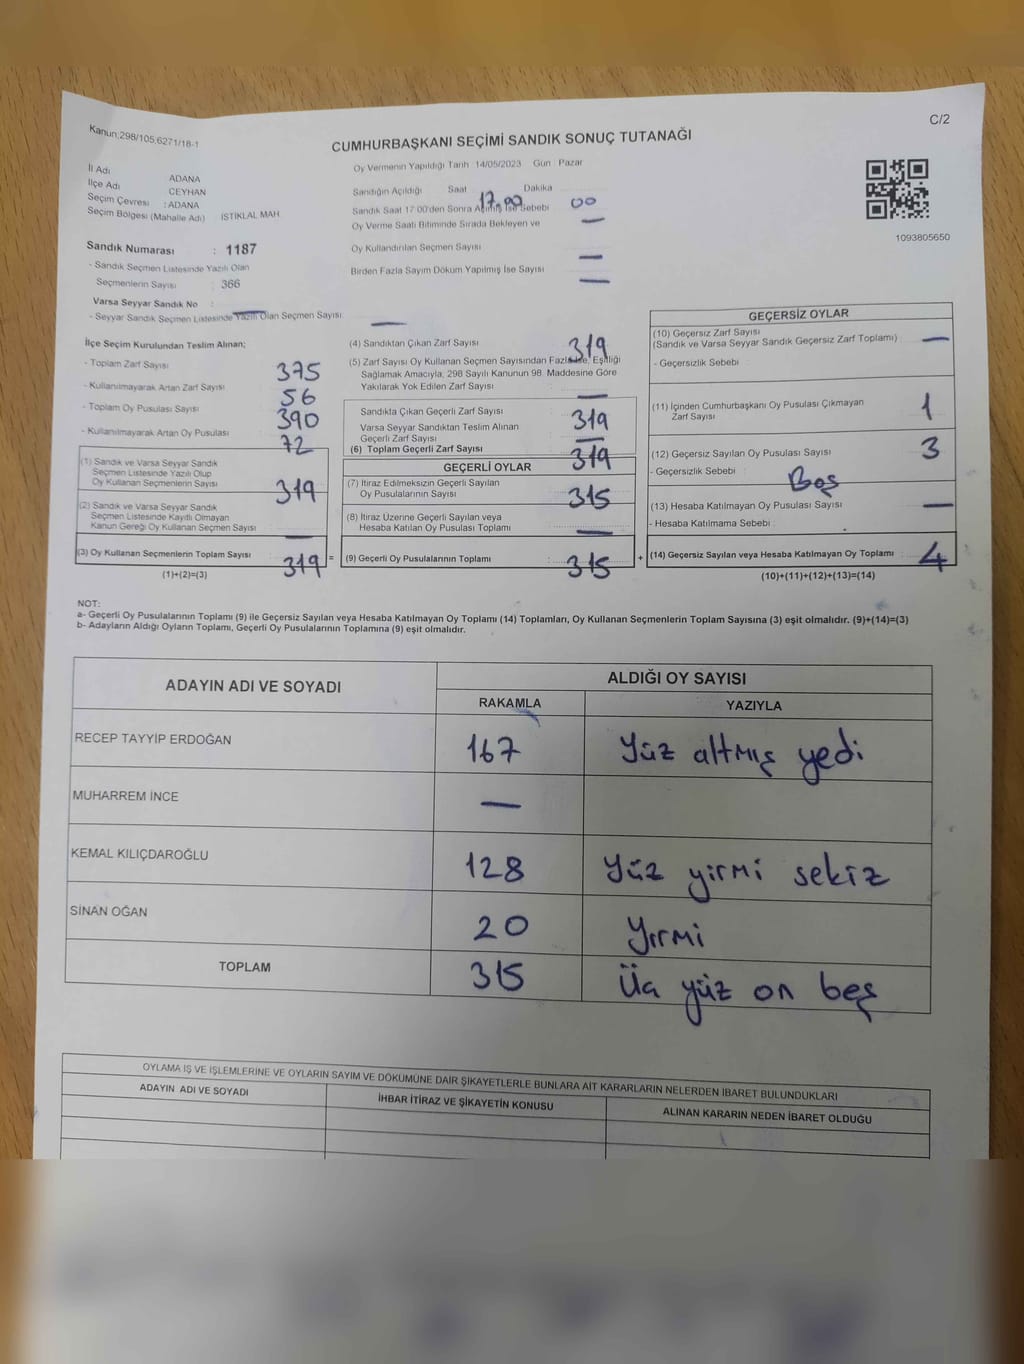 Kanun;298/105,6271/18-1
C/2
CUMHURBAŞKANI SEÇİMİ SANDIK SONUÇ TUTANAĞI
Oy Vermenin Yapıldığı Tarih 14/05/2023 Gün : Pazar
İl Adı ADANA
İlçe Adı CEYHAN
Seçim Çevresi : ADANA
Seçim Bölgesi (Mahalle Adı) İSTİKLAL MAH.
Sandık Numarası : 1187
- Sandık Seçmen Listesinde Yazılı Olan
Seçmenlerin Sayısı : 366
Varsa Seyyar Sandık No :
- Seyyar Sandık Seçmen Listesinde Yazılı Olan Seçmen Sayısı —
Sandığın Açıldığı Saat 17.00 Dakika 00
Sandık Saat 17:00'den Sonra Açılmış İse Sebebi —
Oy Verme Saati Bitiminde Sırada Bekleyen ve
Oy Kullandırılan Seçmen Sayısı —
Birden Fazla Sayım Döküm Yapılmış İse Sayısı —
1093805650
İlçe Seçim Kurulundan Teslim Alınan;
- Toplam Zarf Sayısı 375
- Kullanılmayarak Artan Zarf Sayısı 56
- Toplam Oy Pusulası Sayısı 390
- Kullanılmayarak Artan Oy Pusulası 72
(1) Sandık ve Varsa Seyyar Sandık
Seçmen Listesinde Yazılı Olup
Oy Kullanan Seçmenlerin Sayısı 319
(2) Sandık ve Varsa Seyyar Sandık
Seçmen Listesinde Kayıtlı Olmayan
Kanun Gereği Oy Kullanan Seçmen Sayısı —
(3) Oy Kullanan Seçmenlerin Toplam Sayısı 319 =
(1)+(2)=(3)
(4) Sandıktan Çıkan Zarf Sayısı 319
(5) Zarf Sayısı Oy Kullanan Seçmen Sayısından Fazla İse, Eşitliği
Sağlamak Amacıyla, 298 Sayılı Kanunun 98. Maddesine Göre
Yakılarak Yok Edilen Zarf Sayısı —
Sandıkta Çıkan Geçerli Zarf Sayısı 319
Varsa Seyyar Sandıktan Teslim Alınan
Geçerli Zarf Sayısı —
(6) Toplam Geçerli Zarf Sayısı 319
GEÇERLİ OYLAR
(7) İtiraz Edilmeksizin Geçerli Sayılan
Oy Pusulalarının Sayısı 315
(8) İtiraz Üzerine Geçerli Sayılan veya
Hesaba Katılan Oy Pusulası Toplamı —
(9) Geçerli Oy Pusulalarının Toplamı : 315 +
GEÇERSİZ OYLAR
(10) Geçersiz Zarf Sayısı
(Sandık ve Varsa Seyyar Sandık Geçersiz Zarf Toplamı) —
- Geçersizlik Sebebi
(11) İçinden Cumhurbaşkanı Oy Pusulası Çıkmayan
Zarf Sayısı 1
(12) Geçersiz Sayılan Oy Pusulası Sayısı 3
- Geçersizlik Sebebi : Boş
(13) Hesaba Katılmayan Oy Pusulası Sayısı —
- Hesaba Katılmama Sebebi
(14) Geçersiz Sayılan veya Hesaba Katılmayan Oy Toplamı 4
(10)+(11)+(12)+(13)=(14)
NOT:
a- Geçerli Oy Pusulalarının Toplamı (9) ile Geçersiz Sayılan veya Hesaba Katılmayan Oy Toplamı (14) Toplamları, Oy Kullanan Seçmenlerin Toplam Sayısına (3) eşit olmalıdır. (9)+(14)=(3)
b- Adayların Aldığı Oyların Toplamı, Geçerli Oy Pusulalarının Toplamına (9) eşit olmalıdır.
ADAYIN ADI VE SOYADI ALDIĞI OY SAYISI
RAKAMLA YAZIYLA
RECEP TAYYİP ERDOĞAN 167 Yüz altmış yedi
MUHARREM İNCE —
KEMAL KILIÇDAROĞLU 128 Yüz yirmi sekiz
SİNAN OĞAN 20 Yirmi
TOPLAM 315 Üç yüz on beş
OYLAMA İŞ VE İŞLEMLERİNE VE OYLARIN SAYIM VE DÖKÜMÜNE DAİR ŞİKAYETLERLE BUNLARA AİT KARARLARIN NELERDEN İBARET BULUNDUKLARI
ADAYIN ADI VE SOYADI İHBAR İTİRAZ VE ŞİKAYETİN KONUSU ALINAN KARARIN NEDEN İBARET OLDUĞU